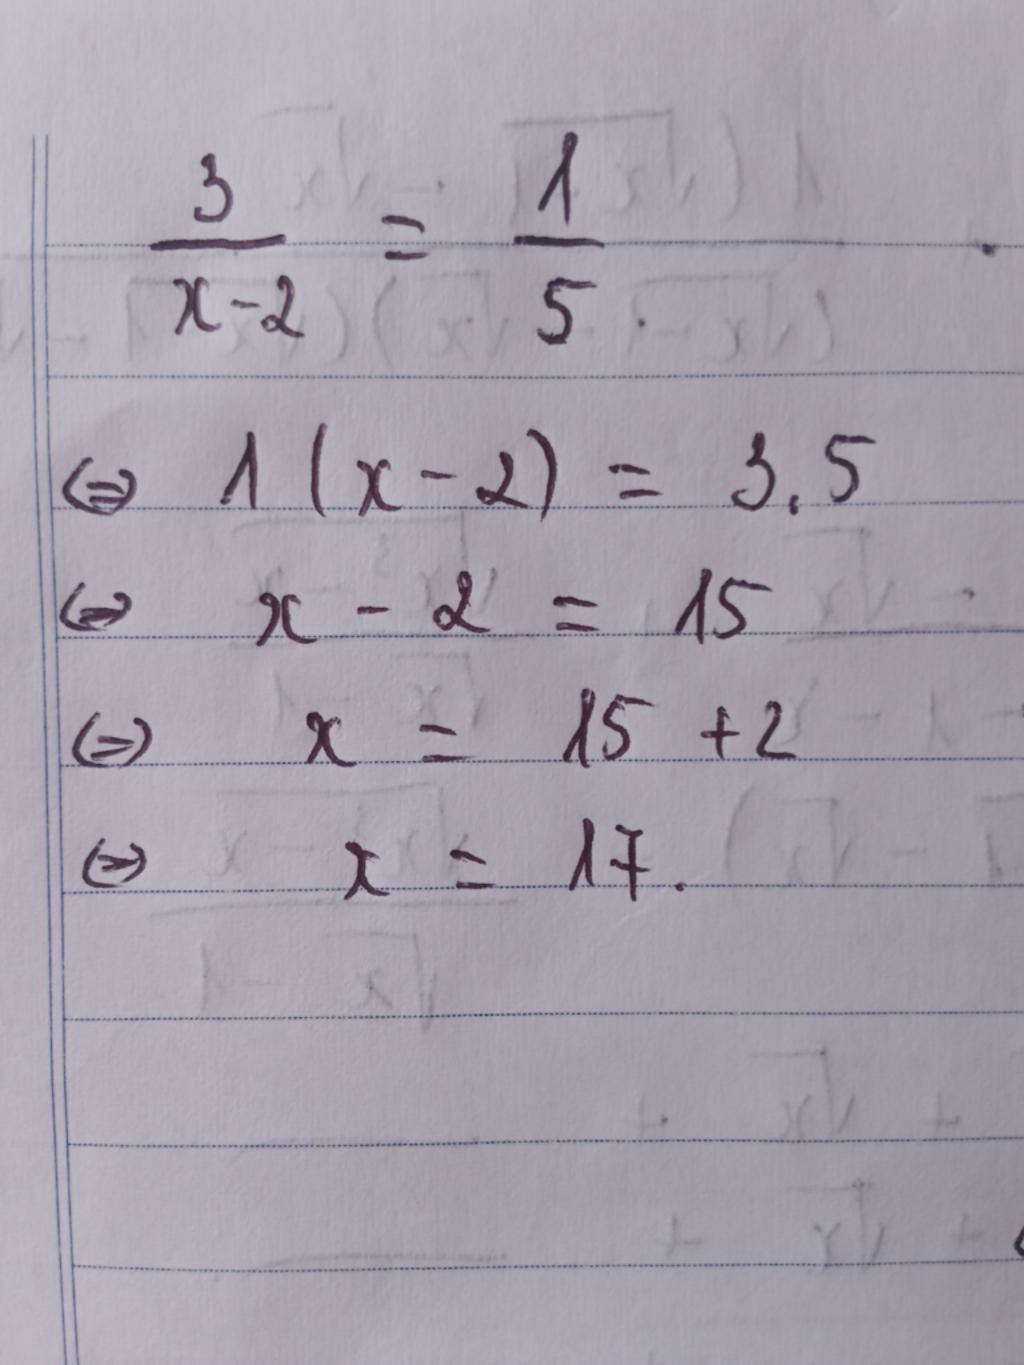 3/(x-2) = 1/5
⇔ 1(x-2) = 3.5
⇔ x - 2 = 15
⇔ x = 15 + 2
⇔ x = 17.